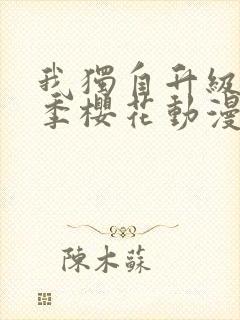 我獨自升級
季櫻花動漫
陳木蘇